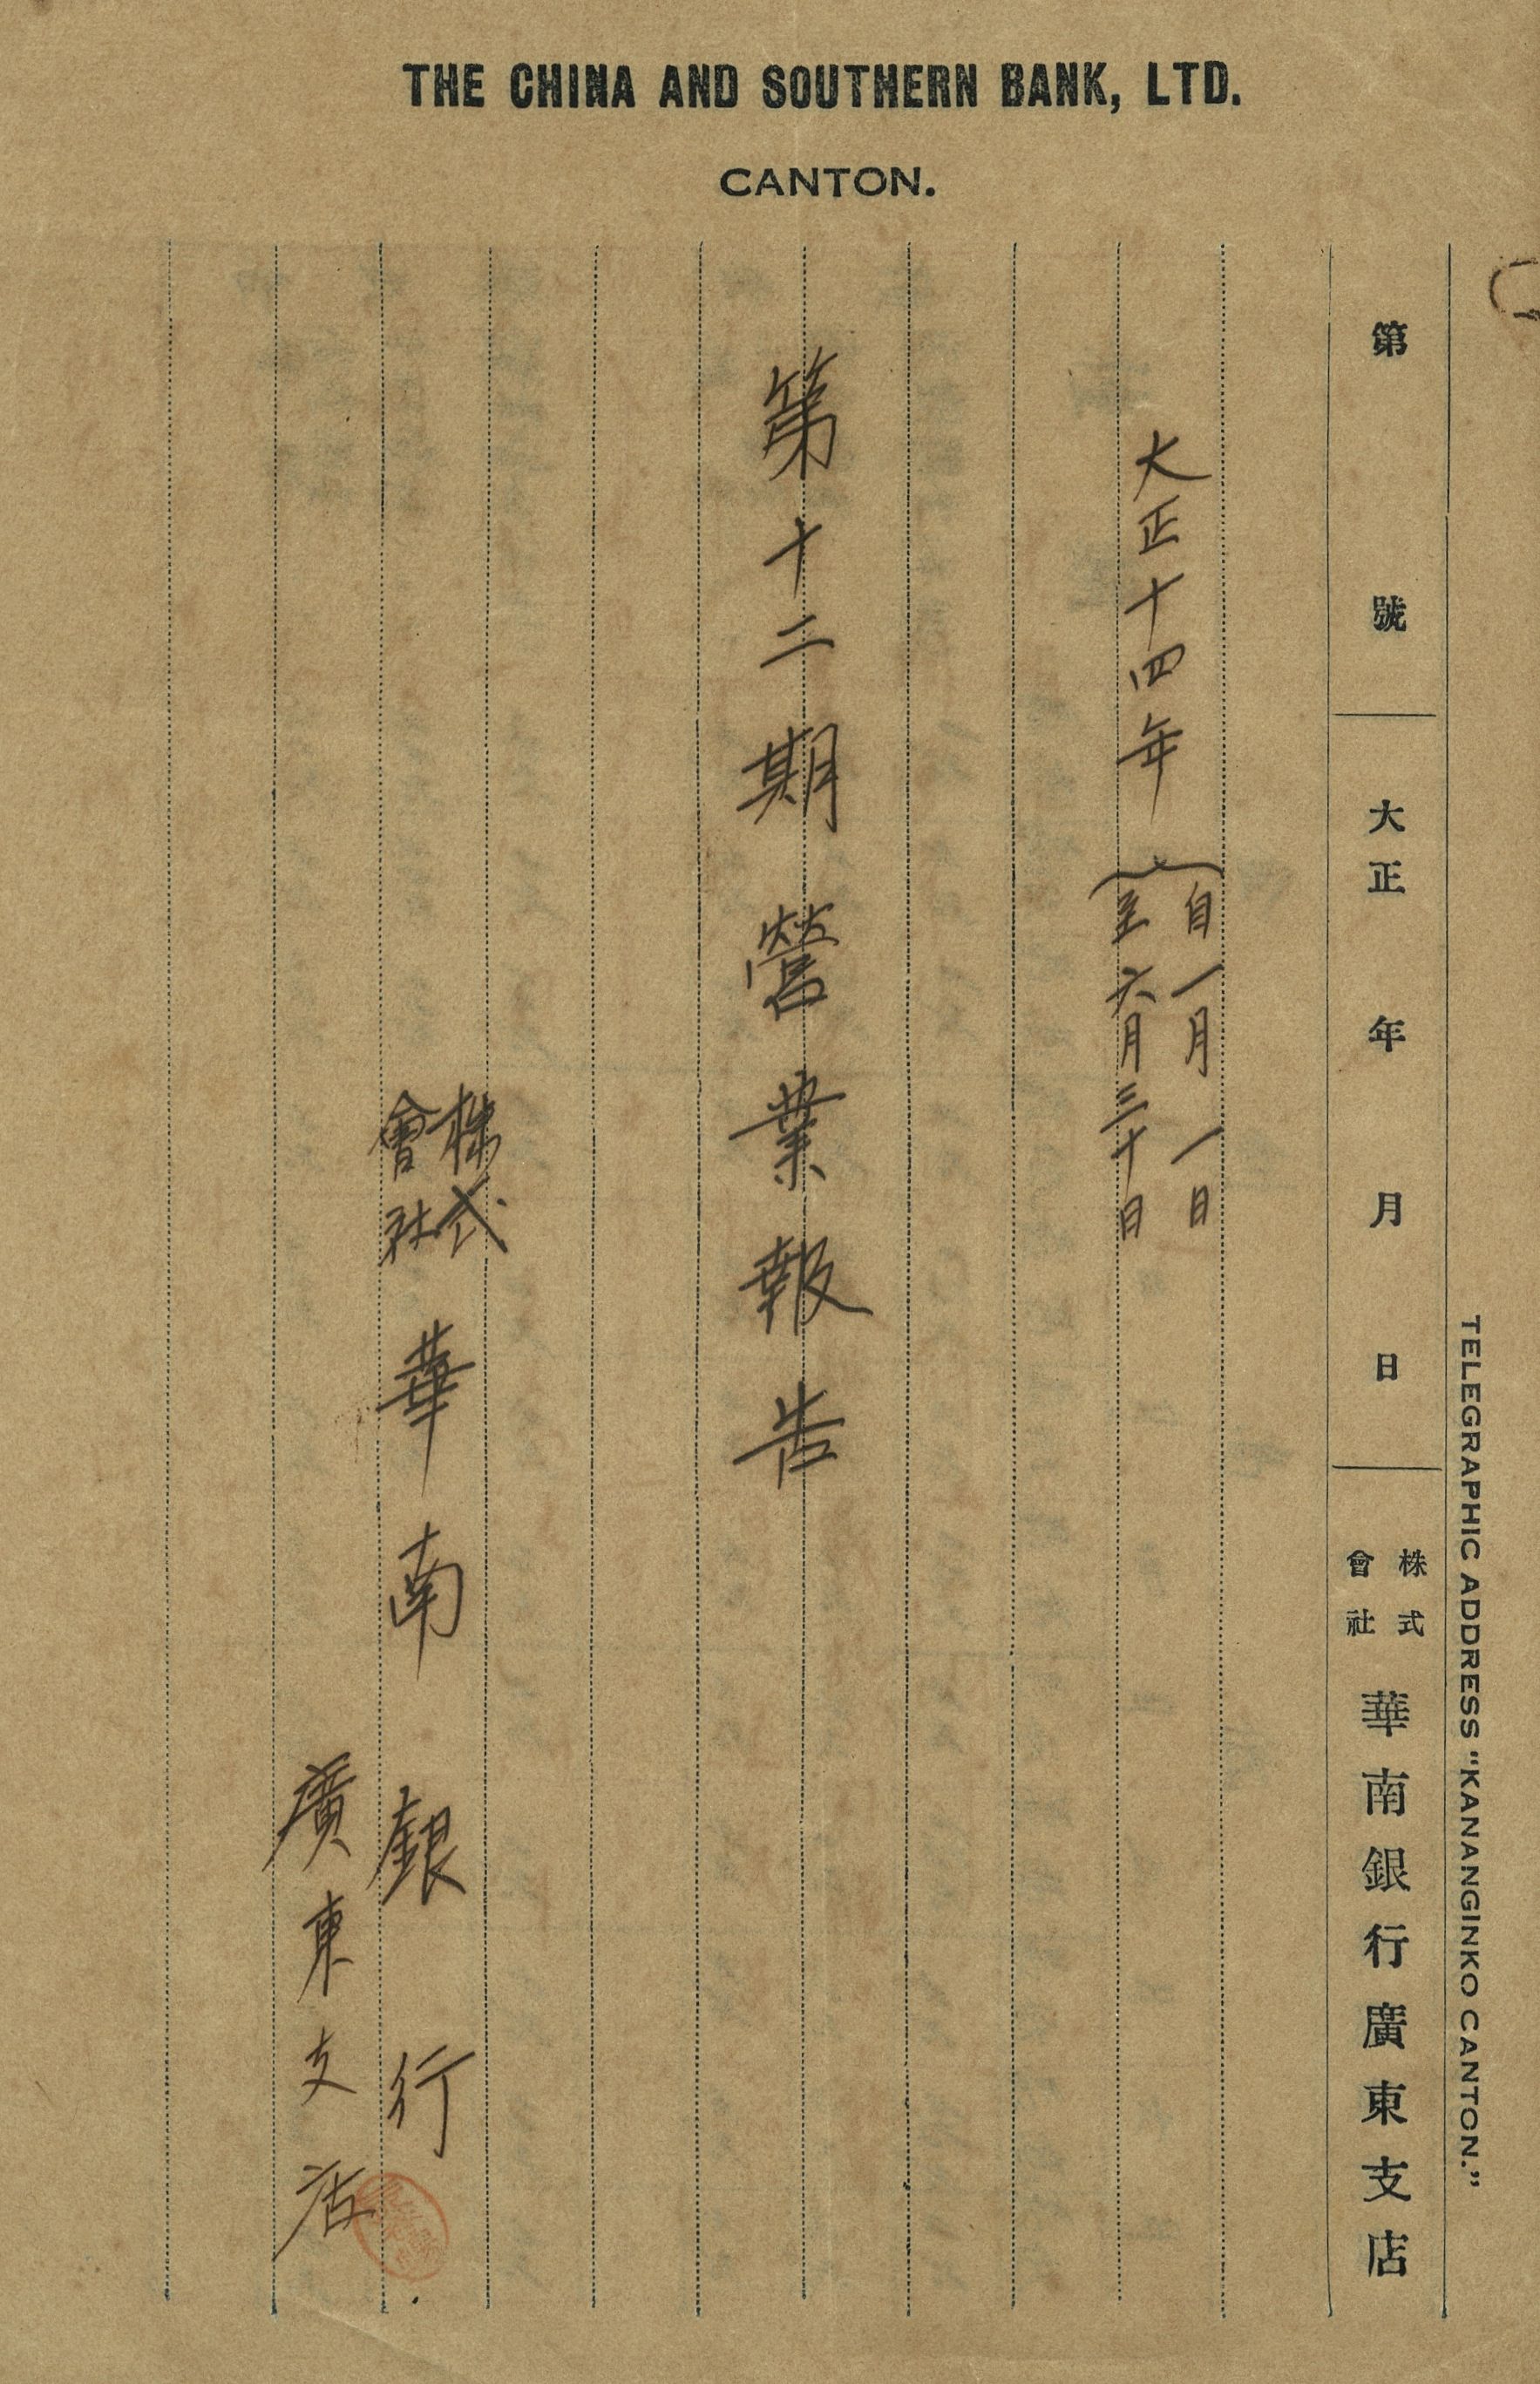 THE CHINA AND SOUTHERN BANK, LTD.
CANTON.
TELEGRAPHIC ADDRESS "KANANGINKO CANTON."
第 號 大正 年 月 日 株式會社 華南銀行廣東支店
大正十四年
自一月一日
至六月三十日
第十二期營業報告
株式會社 華南銀行
廣東支店